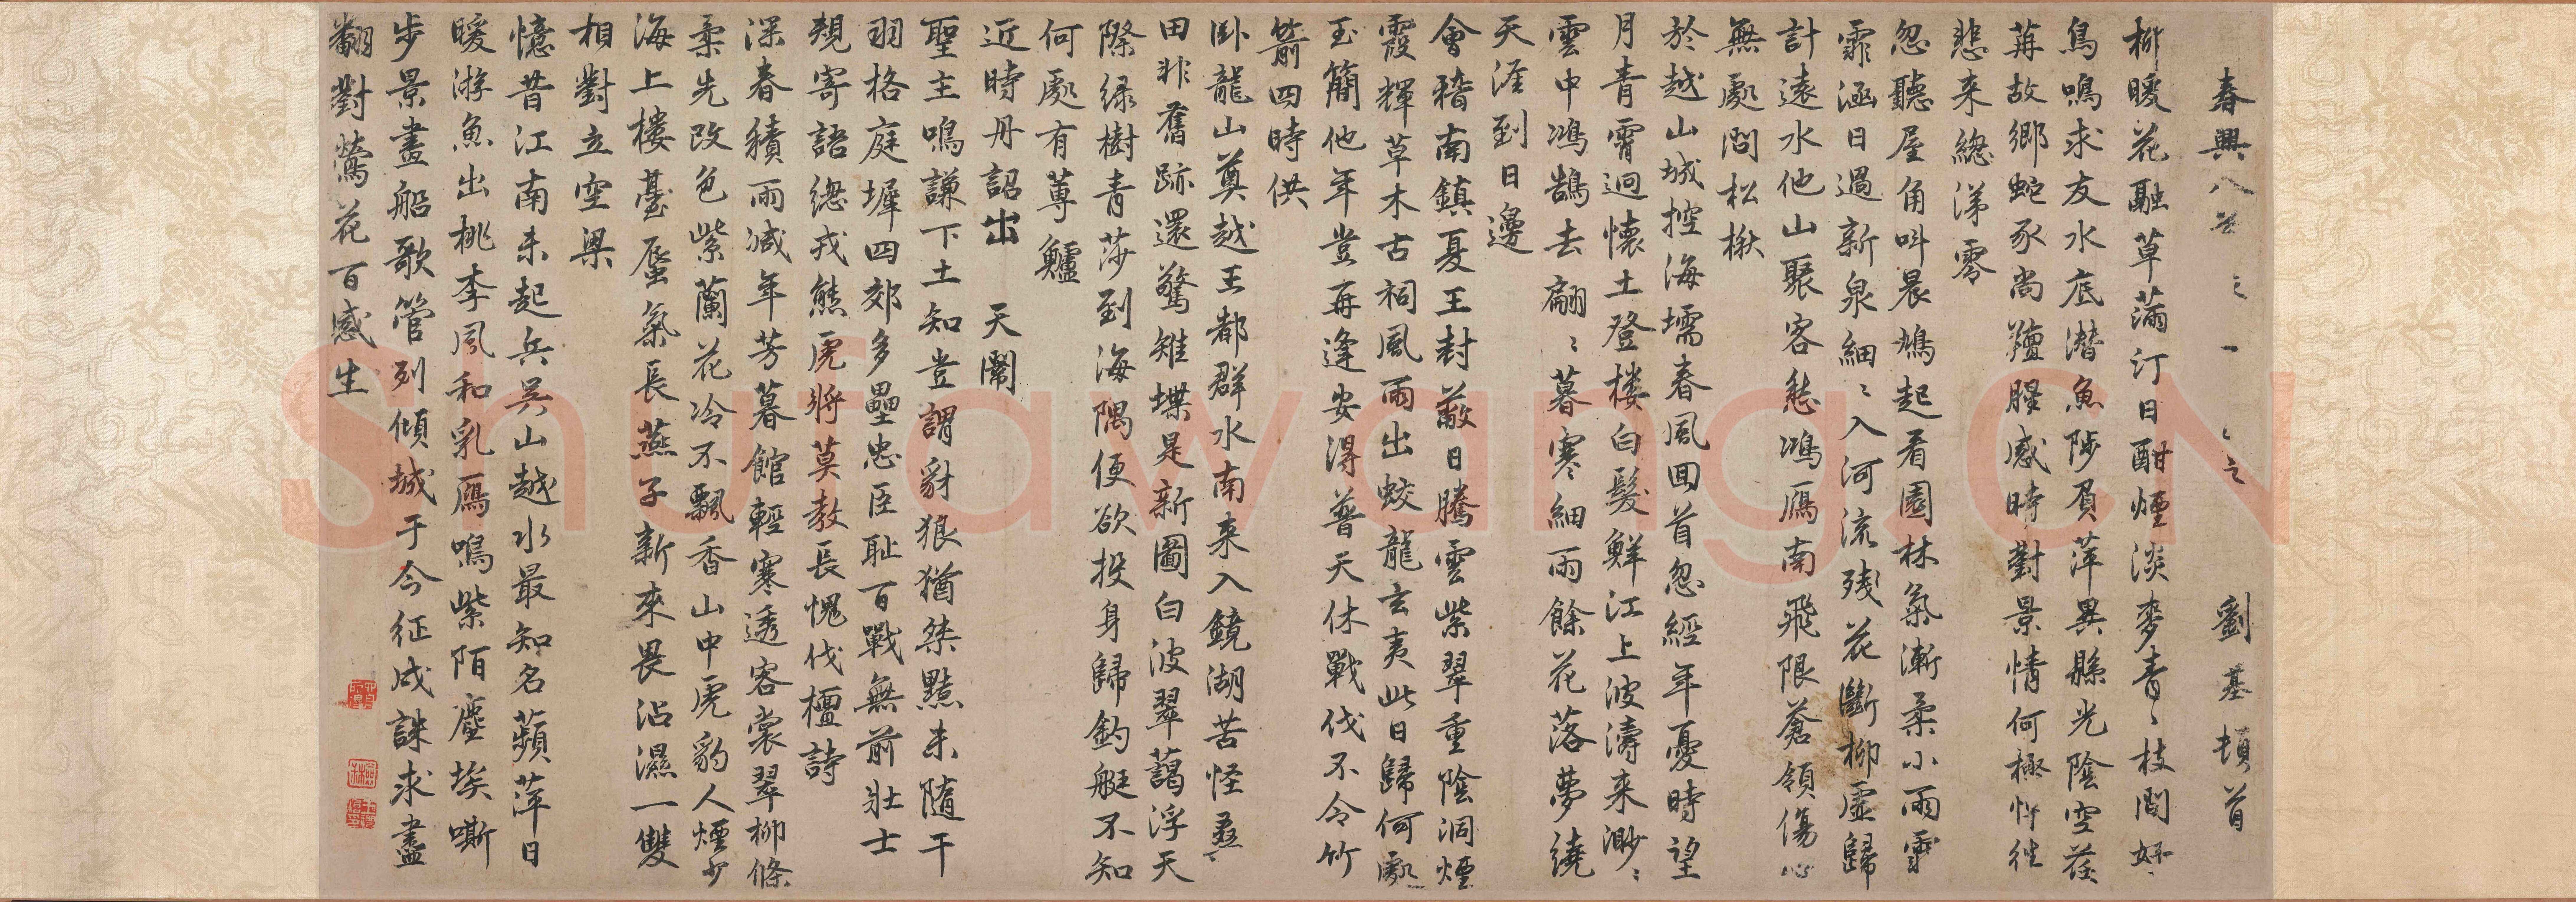 春興八首
劉基頓首
柳暖花融草滿汀日酣煙淡麥青〻枝間好
鳥鳴求友水底潛魚陟負萍異縣光陰空荏
苒故鄉蛇豕尚羶腥感時對景情何極忤往
悲来總涕零
忽聽屋角叫晨鳩起看園林氣漸柔小雨霏
霏涵日過新泉細〻入河流殘花斷柳虛歸
計遠水他山聚客愁鴻鴈南飛限蒼嶺傷心
無處問松楸
於越山城控海壖春風回首忽經年憂時望
月青霄迥懷土登樓白髮鮮江上波濤来渺〻
雲中鴻鵠去翩〻暮寒細雨餘花落夢繞
天涯到日邊
會稽南鎮夏王封蔽日騰雲紫翠重陰洞煙
霞輝草木古祠風雨出蛟龍玄夷此日歸何處
玉簡他年豈再逢安得普天休戰伐不令竹
箭四時供
卧龍山奠越王都群水南来入鏡湖苦怪桑
田非舊跡還驚雉堞是新圖白波翠藹浮天
際綠樹青莎到海隅便欲投身歸釣艇不知
何處有蓴鱸
近時丹詔出天閽
聖主鳴謙下土知豈謂豺狼猶桀黠未隨干
羽格庭墀四郊多壘忠臣恥百戰無前壯士
規寄語總戎熊虎將莫教長愧伐檀詩
深春積雨減年芳暮館輕寒透客裳翠柳條
柔先改色紫蘭花冷不飄香山中虎豹人煙少
海上樓臺蜃氣長燕子新來畏沾濕一雙
相對立空梁
憶昔江南未起兵吳山越水最知名蘋萍日
暖游魚出桃李風和乳鴈鳴紫陌塵埃嘶
步景畫船歌管列傾城于今征戍誅求盡
翻對鶯花百感生
Shufawang.CN